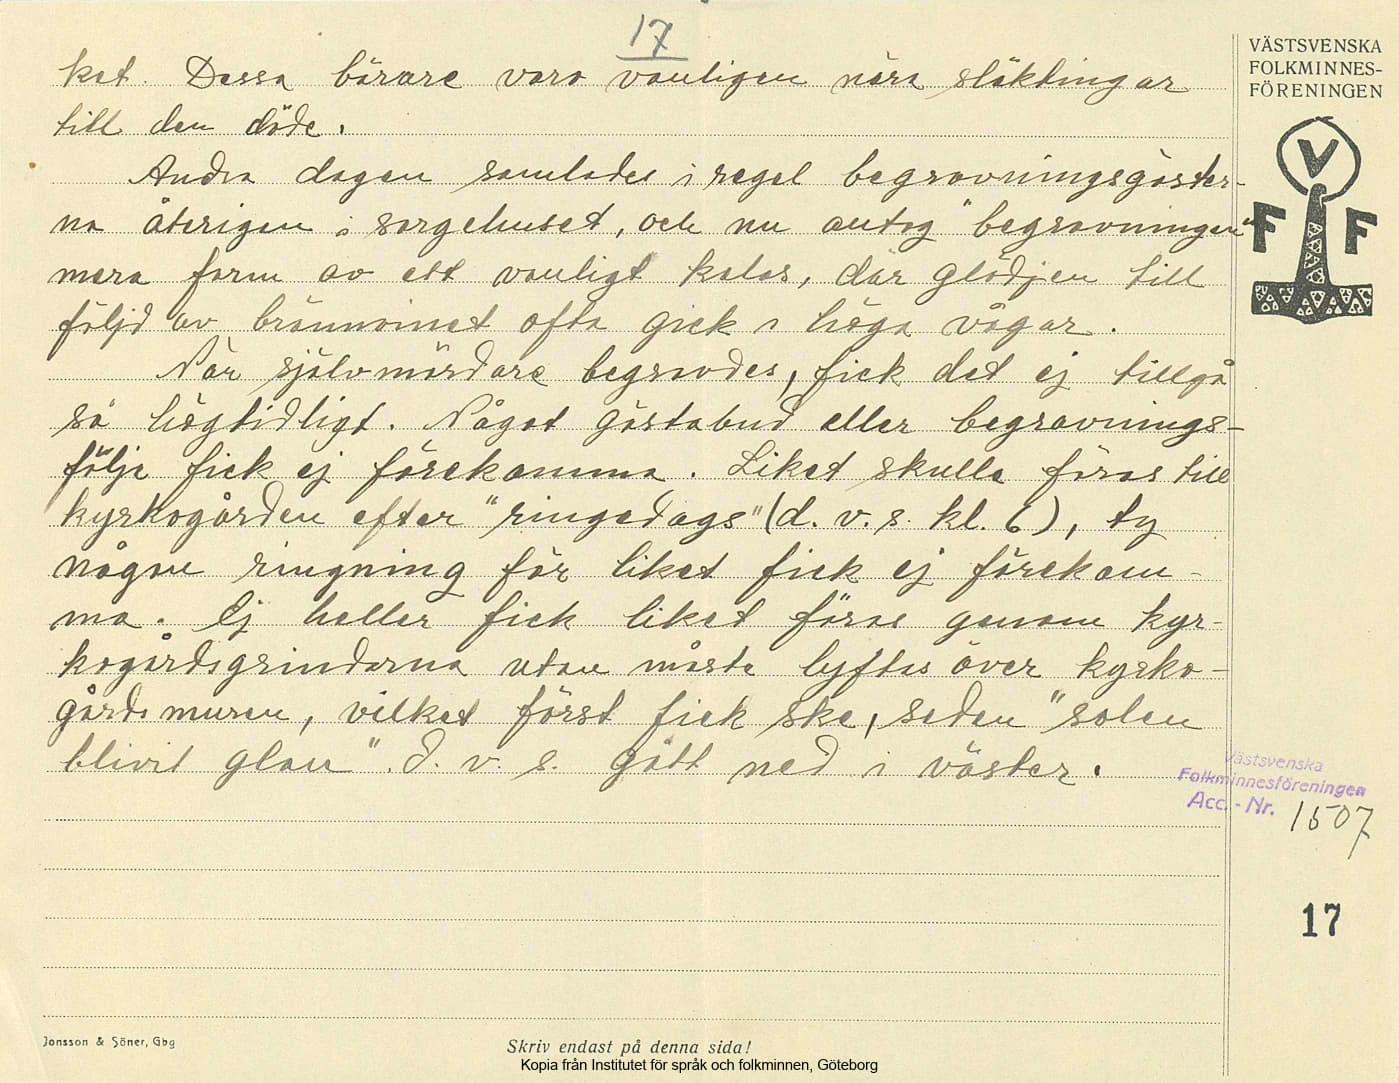 17
ket. Dessa bärare voro vanligen nära släktingar
till den döde.
Andra dagen samlades i regel begravningsgäster-
na återigen i sorgehuset, och nu antog "begravningen"
mera form av ett vanligt kalas, där glädjen till
följd av brännvinet ofta gick i höga vågar.
När självmördare begravdes, fick det ej tillgå
så högtidligt. Något gästabud eller begravnings-
följe fick ej förekomma. Liket skulle föras till
kyrkogården efter "ringedags" (d. v. s. kl. 6), ty
någon ringning för liket fick ej förekom-
ma. Ej heller fick liket föras genom kyr-
kogårdsgrindarna utan måste lyftas över kyrko-
gårdsmuren, vilket först fick ske, sedan "solen
blivit glan". d. v. s. gått ned i väster.
VÄSTSVENSKA
FOLKMINNES-
FÖRENINGEN
V
F F
Västsvenska
Folkminnesföreningen
Acc. - Nr. 1507
17
Jonsson & Söner, Gbg
Skriv endast på denna sida!
Kopia från Institutet för språk och folkminnen, Göteborg